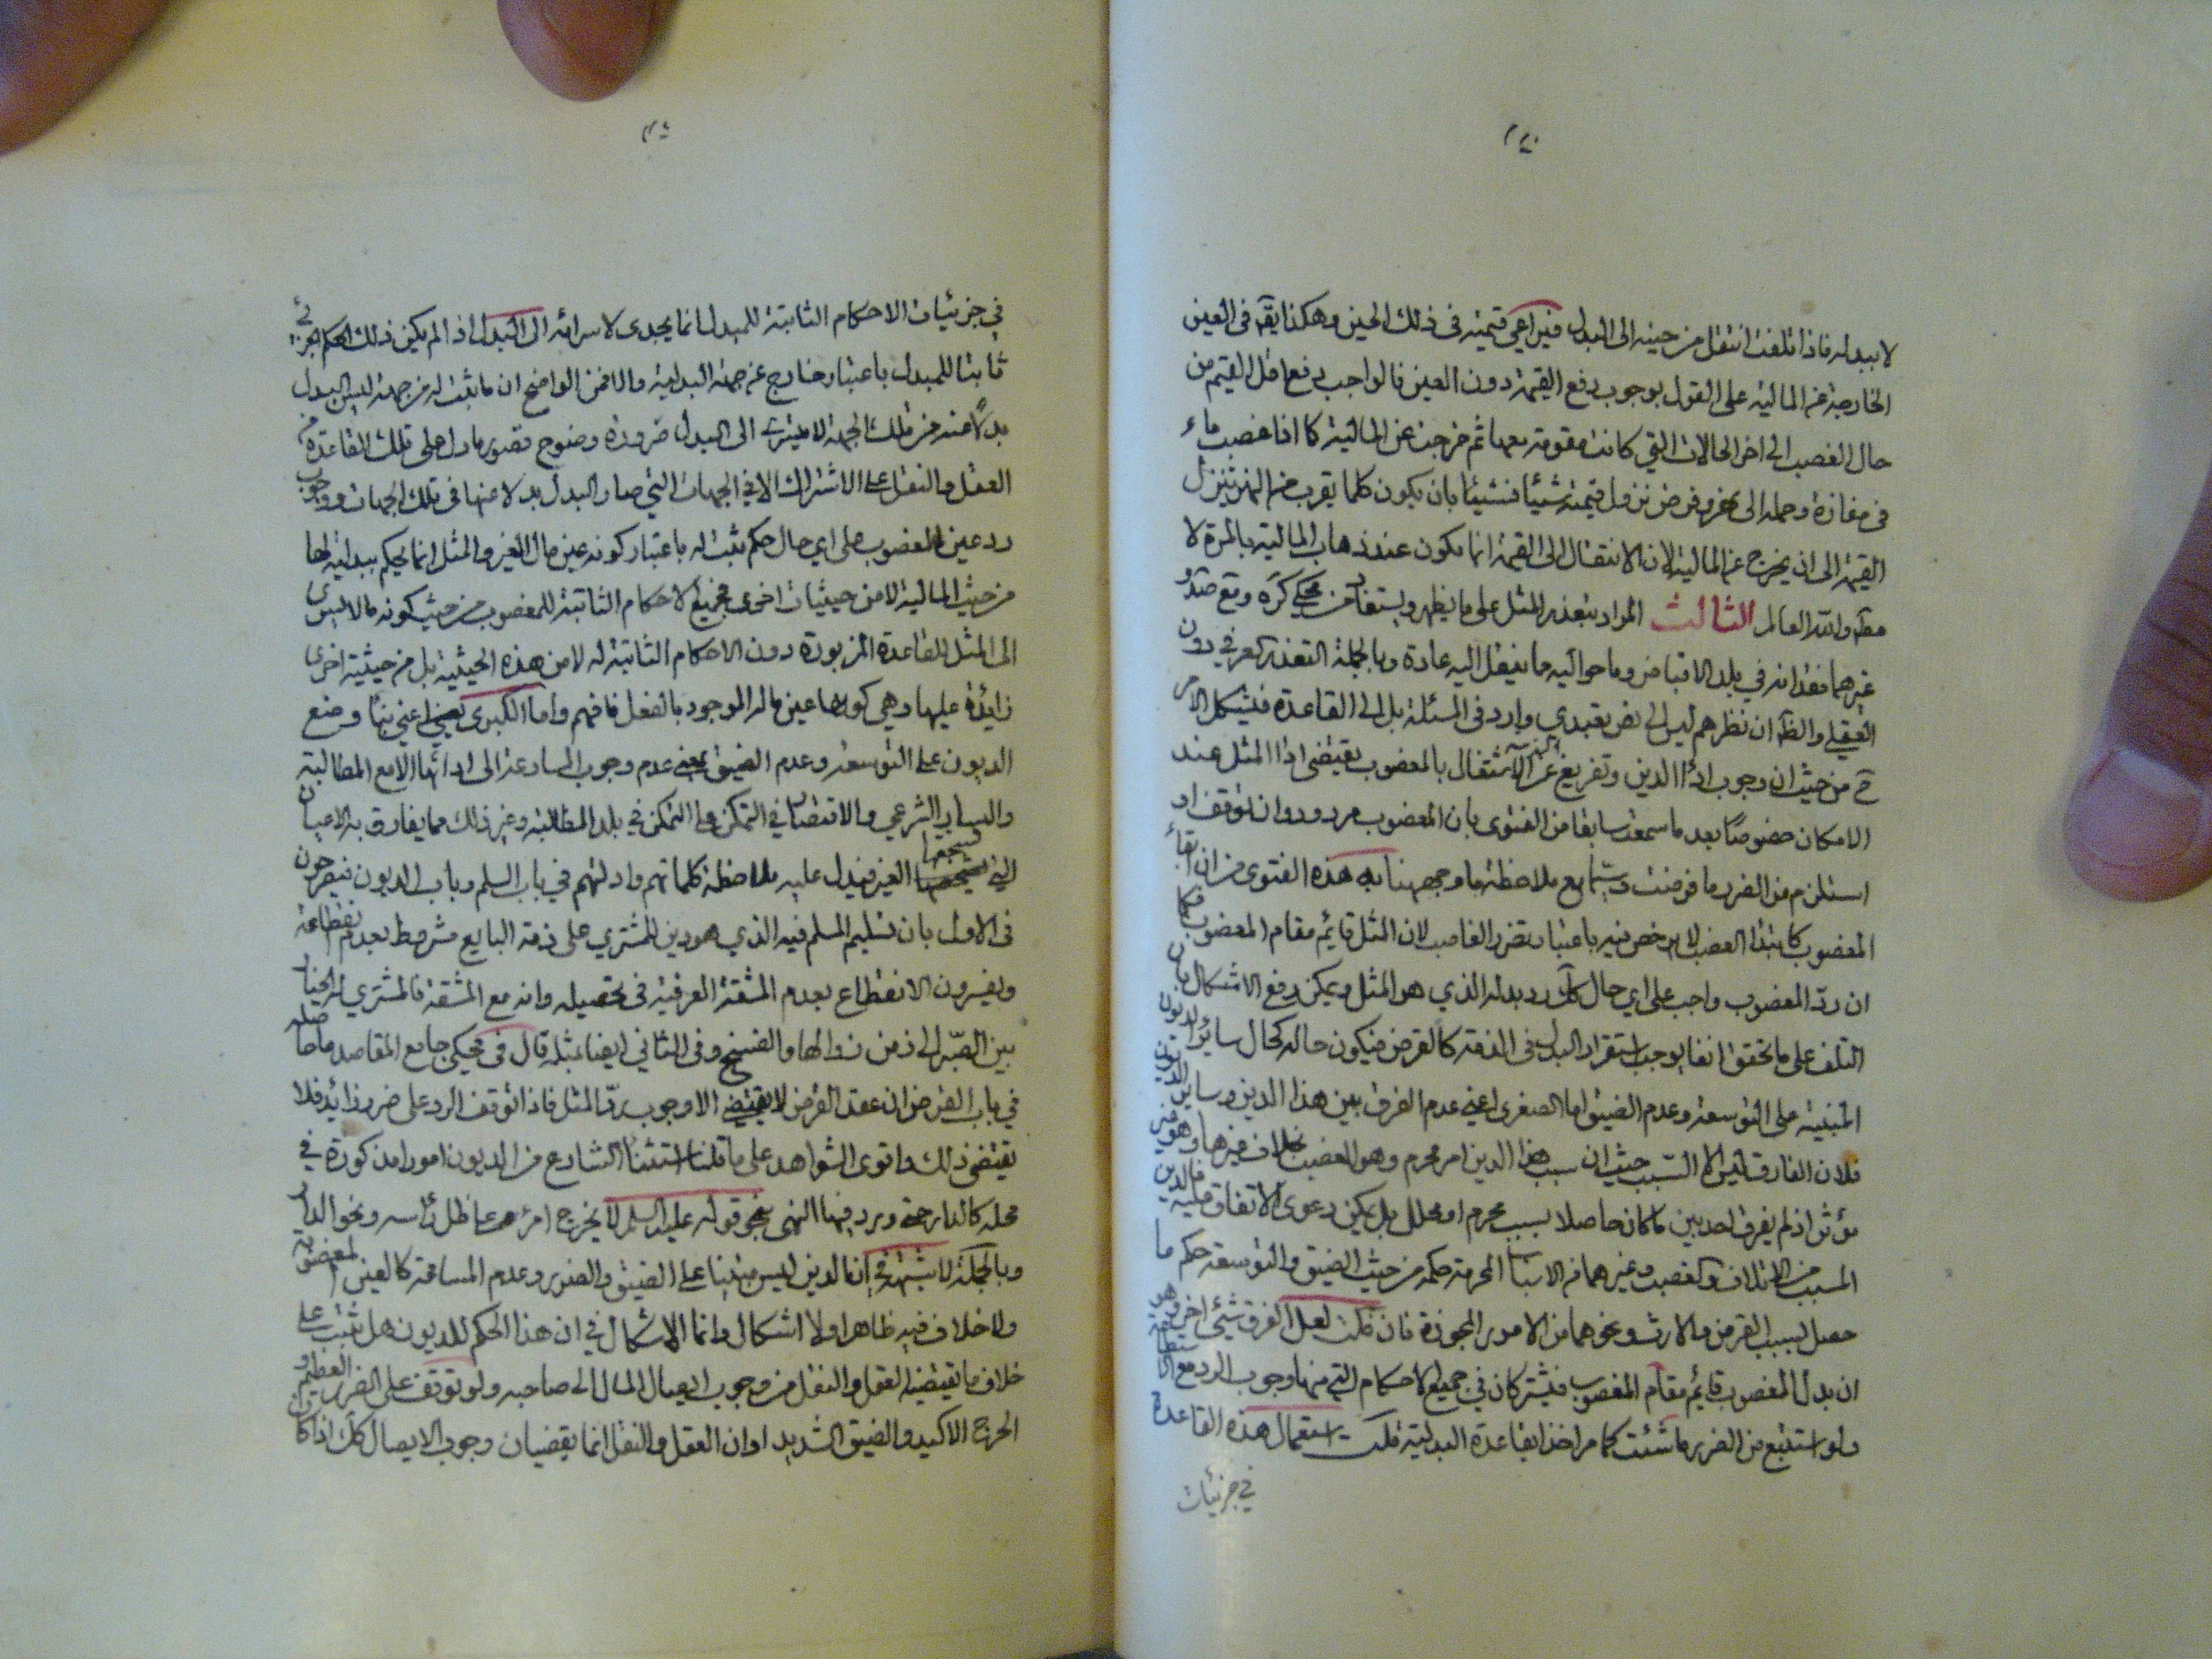 لا ببدله فاذا تلفت انتقل من حينه الى البدل فيراعى قيمته فى ذلك الحين وهكذا يقم فى العين
الخارجة عن المالية على القول بوجوب دفع القيمة دون العين فالواجب دفع اقل القيم من
حال الغصب الى اخر الحالات التي كانت متقومة معها ثم خرجت عن المالية كما اذا غصب ماء
فى مفازة وحمله الى نهر وفرض نزول قيمته شيئا فشيئا بان يكون كلما يقرب من النهر تنزل
القيمة الى ان يخرج عن المالية لان الانتقال الى القيمة انما يكون عند ذهاب المالية بالمرة لا
مطه والله العالم الثالث المراد بتعذر المثل على ما يظهر ويستفاد من محكى كره وتع صد و
غيرهما فقدانه في بلد الاقباض وما حواليه مما ينقل اليه عادة وبالجملة التعذر العرفي دون
العقلي والظاهر ان نظرهم ليس الى نص تعبدي وارد فى المسئلة بل الى القاعدة فيشكل الامر
ح من حيث ان وجوب اداء الدين وتفريغ الذمة عن الاشتغال بالمغصوب يقتضى اداء المثل عند
الامكان خصوصا بعد ما سمعت سابقا من الفتوى بان المغصوب مردود وان توقف او
استلزم من الضرر ما فرضت وسيما مع ملاحظة ما وجهنا به هذه الفتوى من ان ابقاء
المغصوب كابتداء الغصب لا يرخص فيه باعتبار تضرر الغاصب لان المثل قائم مقام المغصوب فكما
ان رد المغصوب واجب على اي حال كك رد بدله الذي هو المثل ويمكن رفع الاشكال بان
التلف على ما تحقق انفا يوجب استقرار البدل فى الذمة كالقرض فيكون حاله كحال سائر الديون
المبنية على التوسعة وعدم الضيق اما الصغرى اعني عدم الفرق بين هذا الدين وساير الديون
فلان الفارق ليس الا السبب حيث ان سبب هذا الدين امر محرم وهو الغصب بخلاف غيرها وهو غير
مؤثر اذ لم يفرق احد بين ما كان حاصلا بسبب محرم او محلل بل يمكن دعوى الاتفاق عليه فالدين
المسبب من الاتلاف والغصب وغيرهما من الاسباب المحرمة حكمه من حيث الضيق والتوسعة حكم ما
حصل بسبب القرض والارث ونحوهما من الامور المجوزة فان قلت لعل الفرق شيئ اخر وهو
ان بدل المغصوب قائم مقام المغصوب فيشتركان في جميع الاحكام التي منها وجوب الرد مع الاستطاعة
ولو استتبع من الضرر ما شئت كما مر اخذا بقاعدة البدلية قلت استعمال هذه القاعدة
في جزئيات
في جزئيات الاحكام الثابتة للمبدل انما يجدى لاسرائه الى البدل اذا لم يكن ذلك الحكم الجزئي
ثابتا للمبدل باعتبار خارج عن جهة البدلية والا فمن الواضح ان ما ثبت له من جهة ليس البدل
بدلا عنه من تلك الجهة لا يسرى الى البدل ضرورة وضوح قصور ما دل على تلك القاعدة من
العقل والنقل على الاشتراك الا في الجهات التي صار البدل بدلا عنها فى تلك الجهات ووجوب
رد عين المغصوب على اي حال حكم ثبت له باعتبار كونه عين مال الغير والمثل انما يحكم ببدليته لها
من حيث المالية لا من حيثيات اخرى فجميع الاحكام الثابتة للمغصوب من حيث كونه مالا يسرى
الى المثل للقاعدة المزبورة دون الاحكام الثابتة له لا من هذه الحيثية بل من حيثية اخرى
زائدة عليها وهي كونها عين ماله الموجود بالفعل فافهم واما الكبرى اعني بناء وضع
الديون على التوسعة وعدم الضيق بمعنى عدم وجوب المسارعة الى ادائها الا مع المطالبة
واليسار الشرعي والاقتصار في التمكن على التمكن في بلد المطالبة وغير ذلك مما يفارق به الاعيان
التي يستحقها الغير فيدل عليه ملاحظة كلماتهم وادلتهم في باب السلم وباب الديون فيصرحون
فى الاول بان تسليم المسلم فيه الذي هو دين للمشتري على ذمة البايع مشروط بعدم انقطاعه
ويفسرون الانقطاع بعدم المشقة العرفية فى تحصيله وانه مع المشقة فالمشتري بالخيار
بين الصبر الى زمن زوالها والفسخ وفى الثاني ايضا بمثله قال فى محكي جامع المقاصد ما حاصله
في باب القرض ان عقد القرض لا يقتضي الا وجوب رد المثل فاذا توقف الرد على ضرر زائد فلا
يقتضى ذلك واقوى الشواهد على ما قلنا استثناء الشارع من الديون امورا مذكورة في
محله كالدار حتى ورد فيها النهى بنحو قوله عليه السلم لا يخرج امرء عن ظل رأسه ونحو الدار
وبالجملة لا شبهة في ان الدين ليس مبنيا على الضيق والضرر وعدم المسامحة كالعين المغصوبة
ولا خلاف فيه ظاهرا ولا اشكال وانما الاشكال في ان هذا الحكم للديون هل ثبت على
خلاف ما يقتضيه العقل والنقل من وجوب ايصال المال الى صاحبه ولو توقف على الضرر العظيم و
الحرج الاكيد والضيق الشديد او ان العقل والنقل انما يقضيان وجوب الايصال كك اذا كان